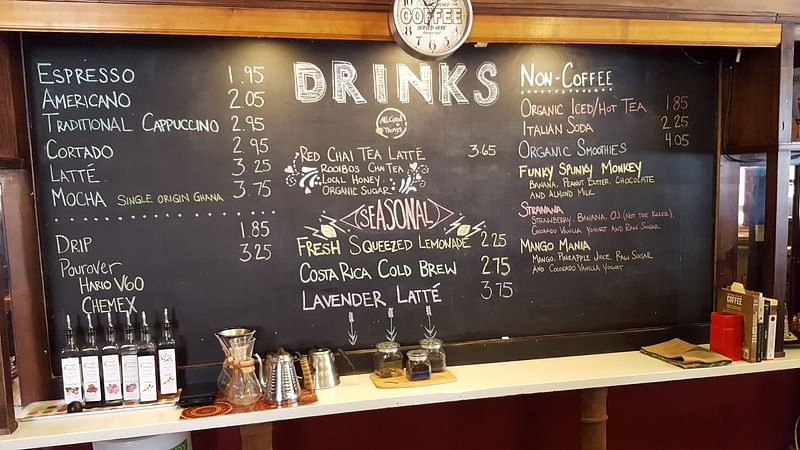 COFFEE
SERVED HERE
DRINKS
All Good Things
ESPRESSO 1.95
AMERICANO 2.05
TRADITIONAL CAPPUCCINO 2.95
CORTADO 2.95
LATTÉ 3.25
MOCHA SINGLE ORIGIN GHANA 3.75
DRIP 1.85
POUROVER 3.25
HARIO V60
CHEMEX
RED CHAI TEA LATTÉ 3.65
ROOIBOS CHAI TEA
LOCAL HONEY
ORGANIC SUGAR
(SEASONAL)
FRESH SQUEEZED LEMONADE 2.25
COSTA RICA COLD BREW 2.75
LAVENDER LATTÉ 3.75
NON-COFFEE
ORGANIC ICED/HOT TEA 1.85
ITALIAN SODA 2.25
ORGANIC SMOOTHIES 4.05
FUNKY SPUNKY MONKEY
BANANA, PEANUT BUTTER, CHOCOLATE
AND ALMOND MILK
STRANANA
STRAWBERRY, BANANA, OJ (NOT THE KILLER),
COLORADO VANILLA YOGURT AND RAW SUGAR
MANGO MANIA
MANGO, PINEAPPLE JUICE, RAW SUGAR
AND COLORADO VANILLA YOGURT
COFFEE